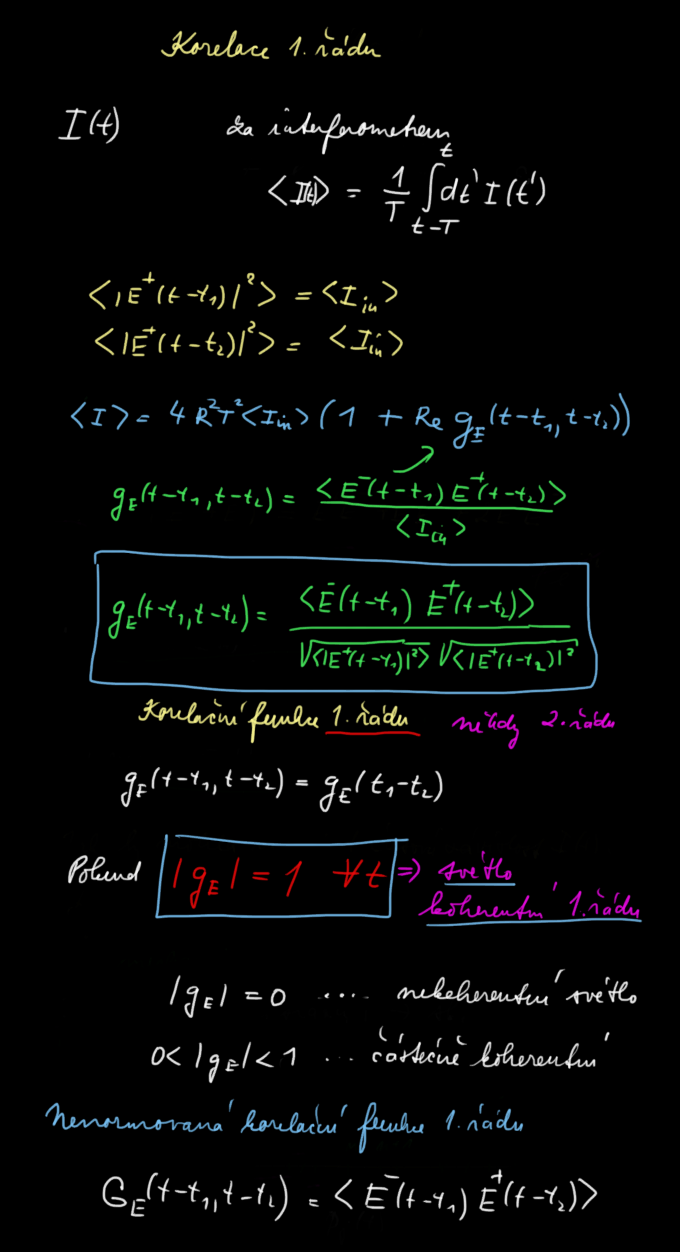 Korelace 1. řádu
I(t) za interferometrem
⟨I(t)⟩ = 1/T ∫_{t-T}^{t} dt' I(t')
⟨|E⁺(t-t₁)|²⟩ = ⟨I_in⟩
⟨|E⁺(t-t₂)|²⟩ = ⟨I_in⟩
⟨I⟩ = 4R²T²⟨I_in⟩(1 + Re g_E(t-t₁, t-t₂))
g_E(t-t₁, t-t₂) = ⟨E⁻(t-t₁) E⁺(t-t₂)⟩ / ⟨I_in⟩
g_E(t-t₁, t-t₂) = ⟨E⁻(t-t₁) E⁺(t-t₂)⟩ / √⟨|E⁺(t-t₁)|²⟩ √⟨|E⁺(t-t₂)|²
Korelační funkce 1. řádu někdy 2. řádu
g_E(t-t₁, t-t₂) = g_E(t₁-t₂)
Pokud |g_E| = 1 ∀t ⇒ světlo
koherentní 1. řádu
|g_E| = 0 .... nekoherentní světlo
0 < |g_E| < 1 ... částečně koherentní
Nenormovaná korelační funkce 1. řádu
G_E(t-t₁, t-t₂) = ⟨E⁻(t-t₁) E⁺(t-t₂)⟩